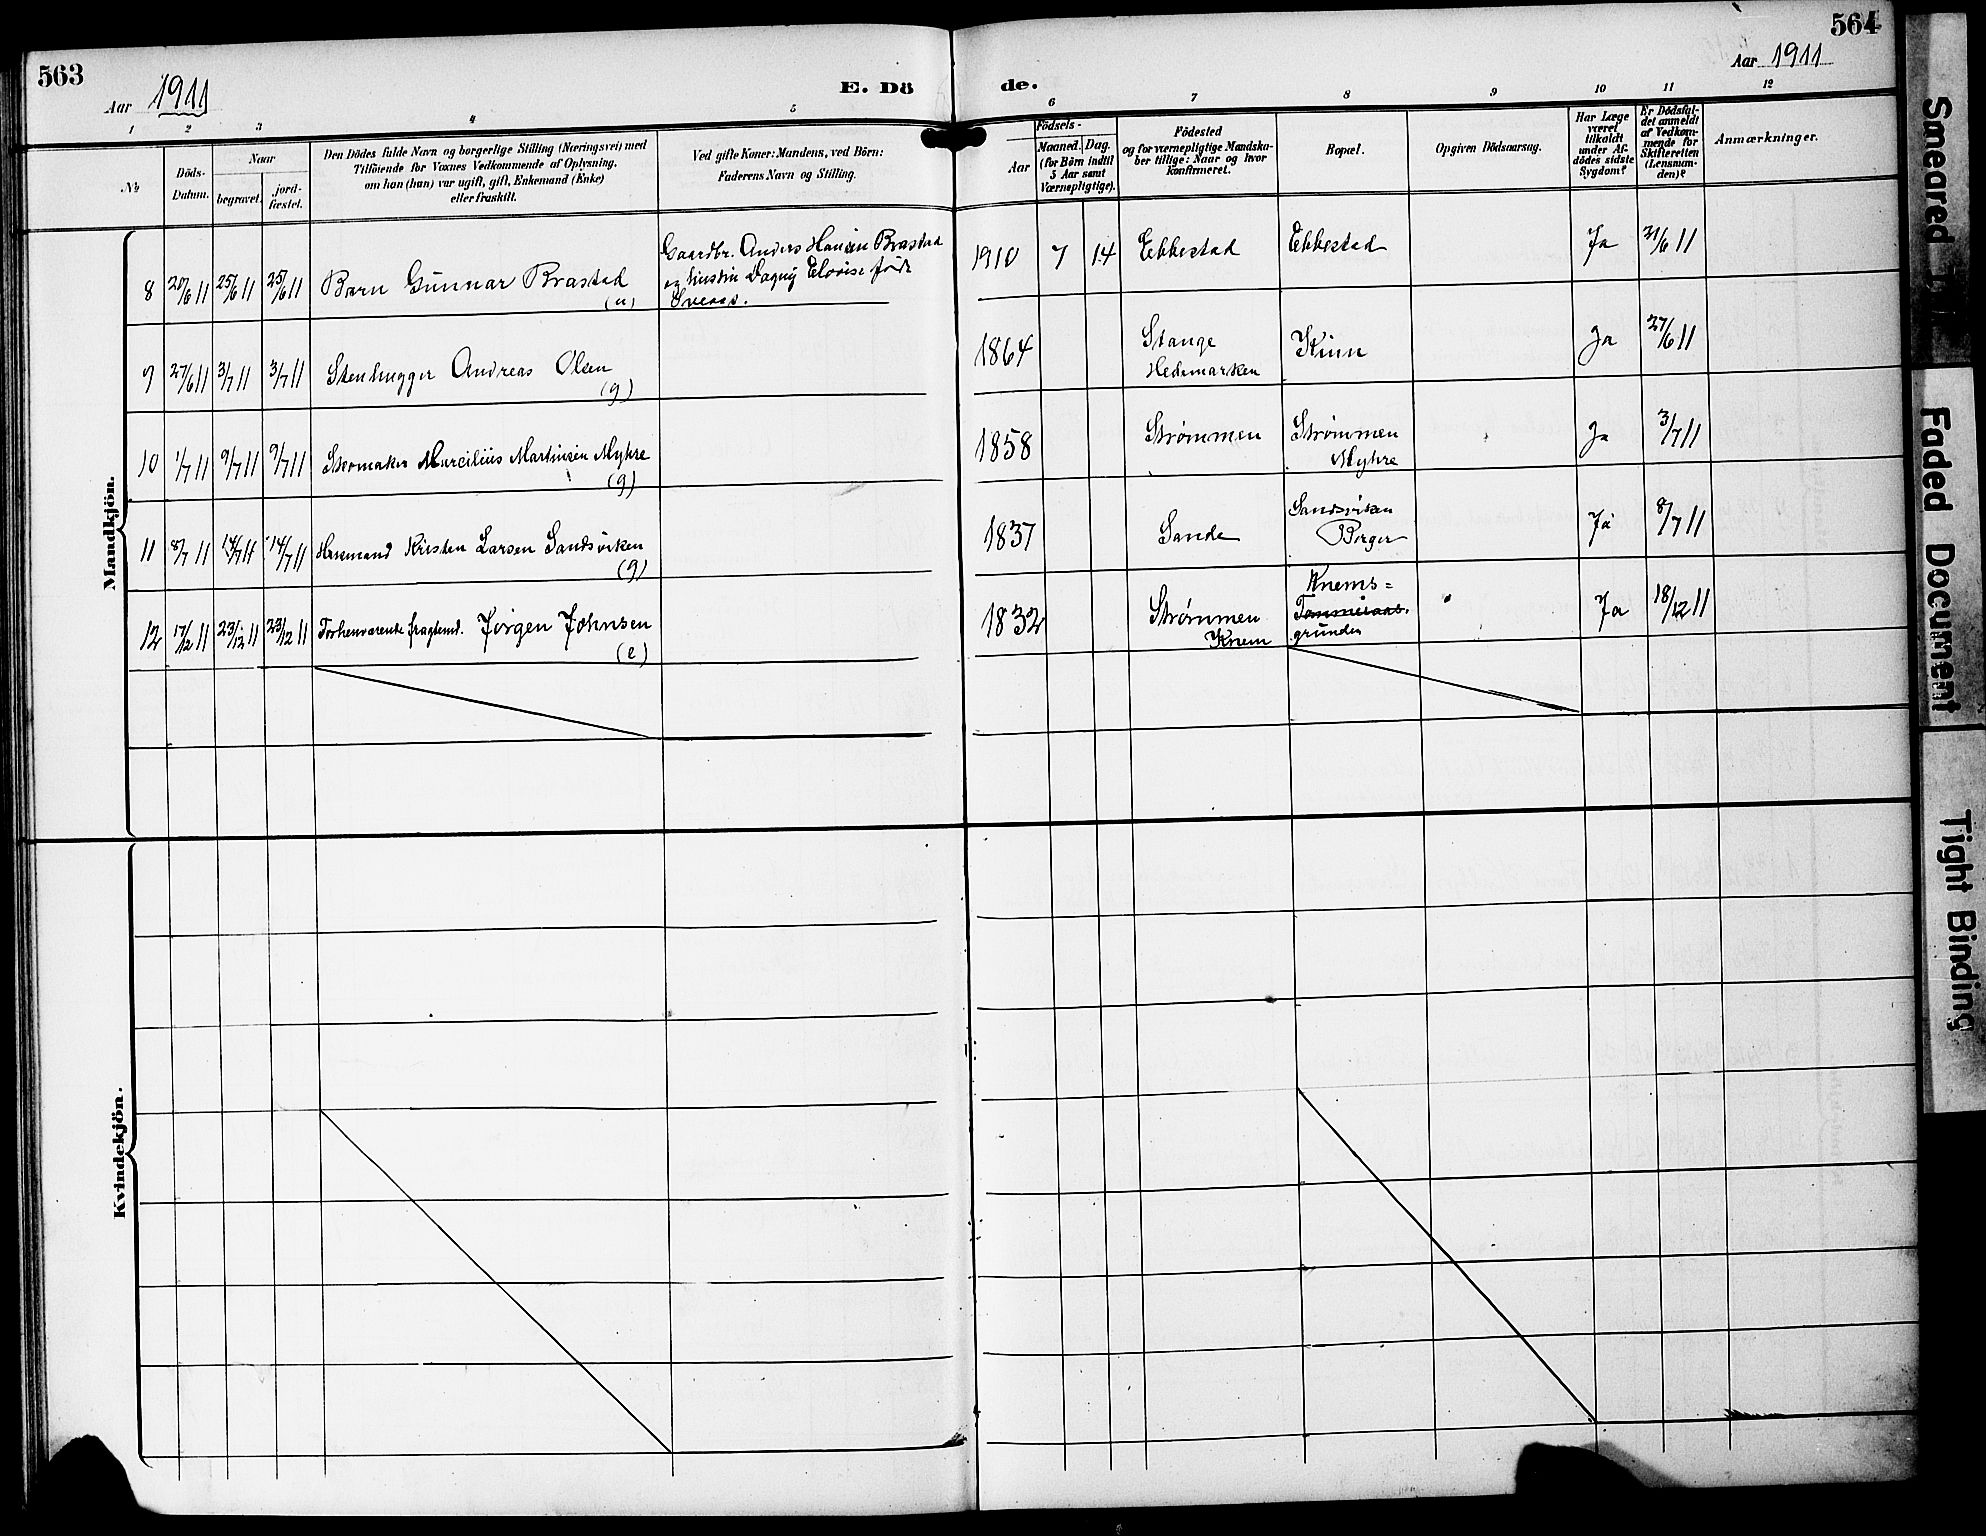 563
Aar 1911
E. Dö
de.
Aar 1911
564
1 2 3 4 5 6 7 8 9 10 11 12
№
Döds-
Datum.
Naar
begravet.
jord-
fæstet.
Den Dödes fulde Navn og borgerlige Stilling (Næringsvei) med
Tilföiende for Voxnes Vedkommende af Oplysning,
om hun (han) var ugift, gift, Enkemand (Enke)
eller fraskilt.
Ved gifte Koner: Mandens, ved Börn:
Faderens Navn og Stilling.
Födsels-
Aar
Maaned. Dag.
(for Börn indtil
5 Aar samt
Værnepligtige).
Födested
og for værnepligtige Mandska-
ber tillige: Naar og hvor
konfirmeret.
Bopæl.
Opgiven Dödsaarsag.
Har Læge
været
tilkaldt
under Af-
dödes sidste
Sygdom?
Er Dödsfal-
det anmeldt
af Vedkom-
mende for
Skifteretten
(Lensman-
den)?
Anmærkninger.
Mandkjön.
8 20/6 11 25/6 11 25/6 11 Barn Gunnar Brastad
(u)
Gaardbr. Anders Hansen Brastad
og hustru Dagny Elovise født
Sveaas.
1910 7 14 Ebbestad Ebbestad Ja 21/6 11
9 27/6 11 3/7 11 3/7 11 Stenhugger Andreas Olsen
(g)
1864 Stange
Hedemarken
Kinn Ja 27/6 11
10 1/7 11 9/7 11 9/7 11 Skomaker Marcilius Martinsen Myhre
(g)
1858 Strømmen Strømmen
Myhre
Ja 3/7 11
11 8/7 11 14/7 11 14/7 11 Husmand Kristen Larsen Sandsviken
(g)
1837 Sande Sandsviken
Berger
Ja 8/7 11
12 17/12 11 23/12 11 23/12 11 Forhenværende fragtemd. Jørgen Johnsen
(e)
1832 Strømmen
Knem
Knems=
grunden
Ja 18/12 11
Kvindekjön.
Smeared
Faded Document
Tight Binding